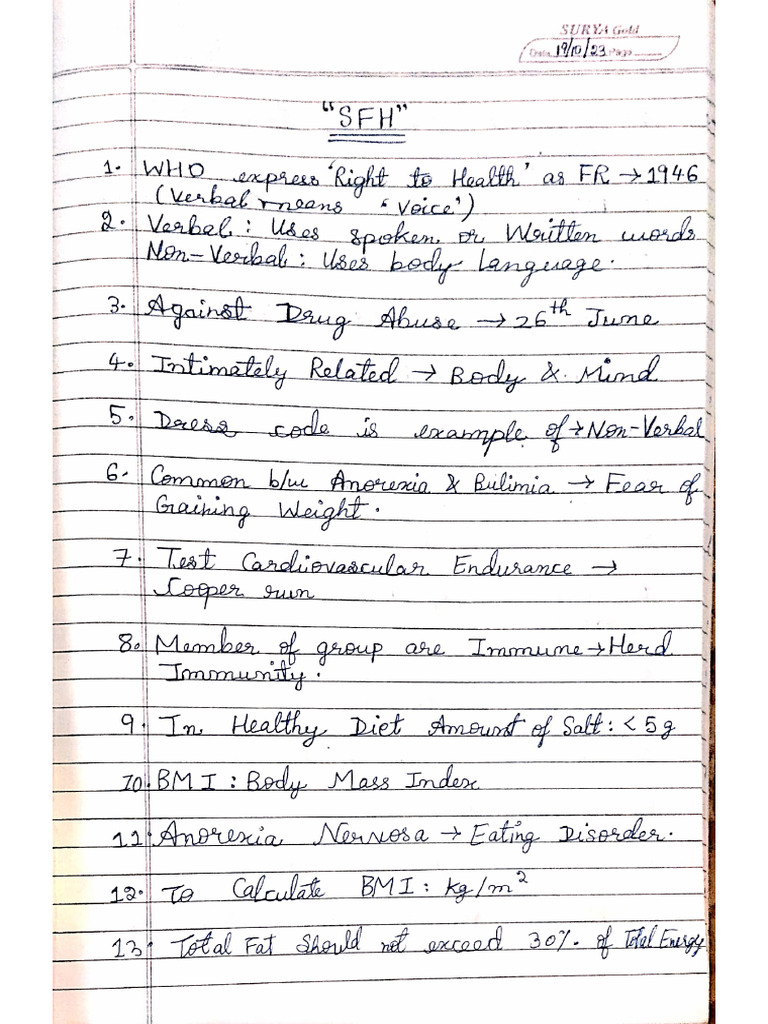 SURYA Gold
Date 19/10/23 Page
"SFH"
1. WHO express 'Right to Health' as FR → 1946
(Verbal means 'Voice')
2. Verbal: Uses spoken or Written words
Non-Verbal: Uses body language.
3. Against Drug Abuse → 26th June
4. Intimately Related → Body & Mind
5. Dress code is example of → Non-Verbal
6. Common b/w Anorexia & Bulimia → Fear of
Gaining Weight.
7. Test Cardiovascular Endurance →
Cooper run
8. Member of group are Immune → Herd
Immunity.
9. In Healthy Diet Amount of Salt: < 5g
10. BMI: Body Mass Index
11. Anorexia Nervosa → Eating Disorder.
12. To Calculate BMI: kg/m²
13. Total Fat Should not exceed 30%. of Total Energy